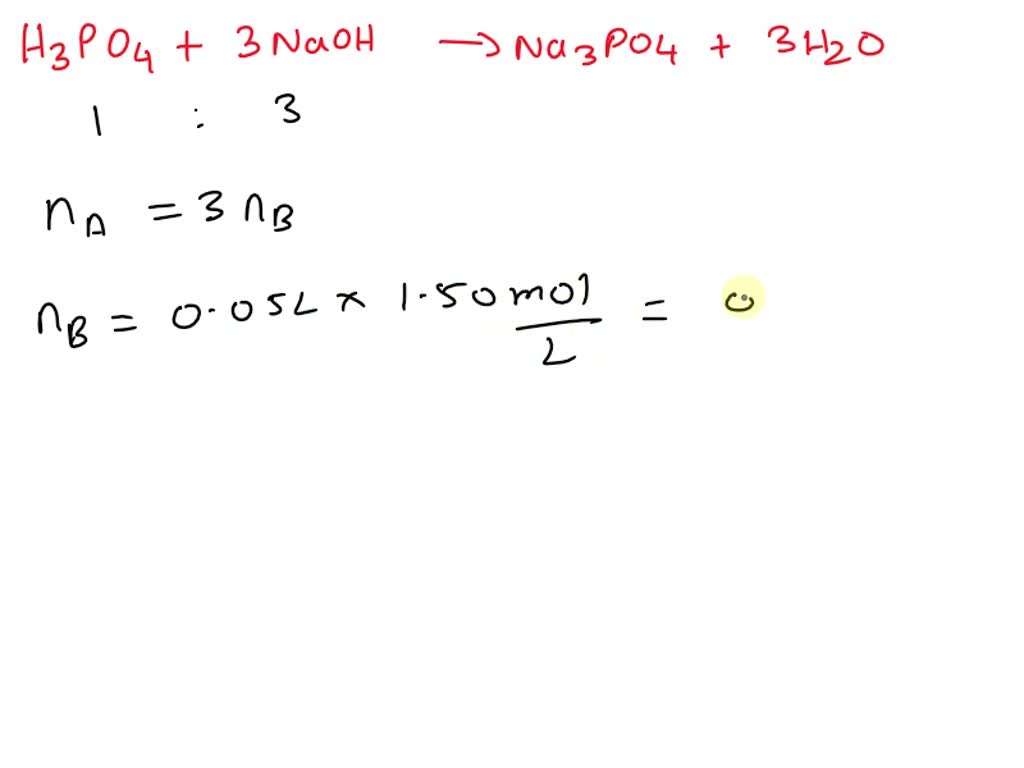 H₃PO₄ + 3NaOH → Na₃PO₄ + 3H₂O
1 : 3
nA = 3 nB
nB = 0.05L × 1.50 mol/L = 0